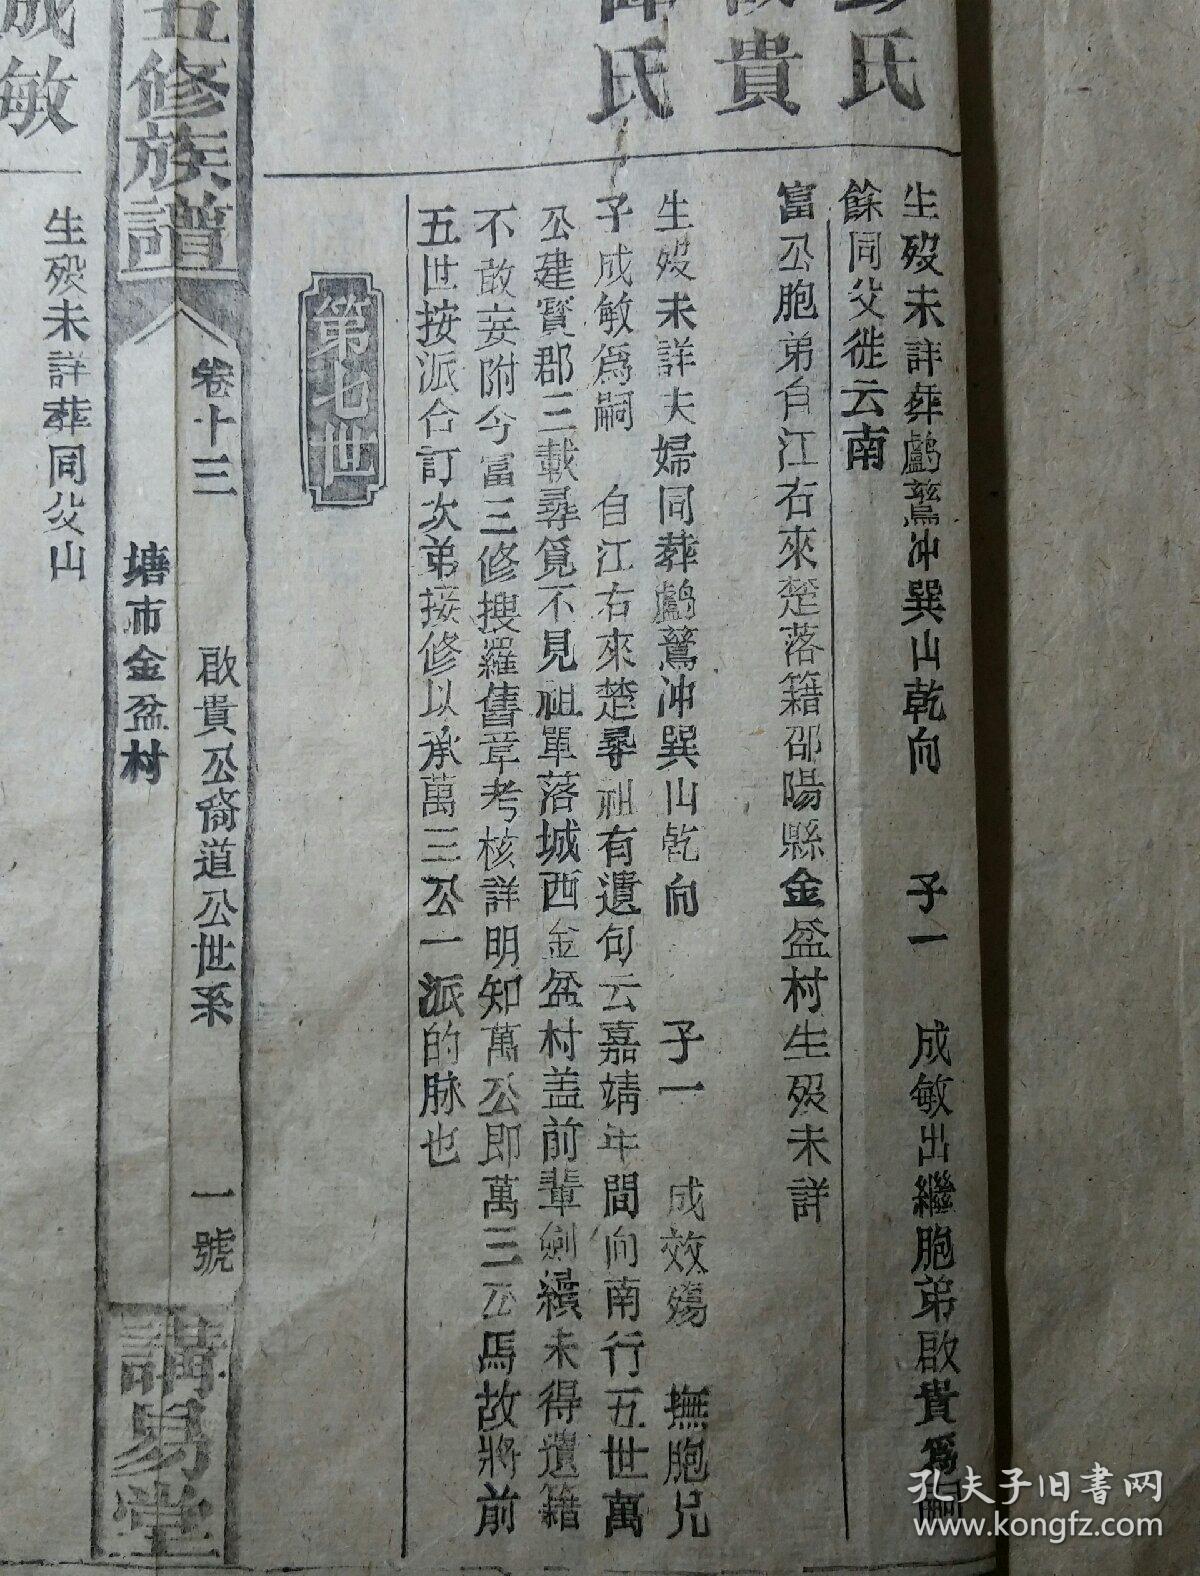 氏
貴
氏
生歿未詳葬鸕鶿冲巽山乾向 子一 成敏出繼胞弟啟貴爲嗣
餘同父徙云南
富公胞弟自江右來楚落籍邵陽縣金盆村生歿未詳
生歿未詳夫婦同葬鸕鶿冲巽山乾向 子一 成效殤 撫胞兄
子成敏爲嗣 自江右來楚尋祖有遺句云嘉靖年間向南行五世萬
公建寳郡三載尋覓不見祖單落城西金盆村盖前輩創纘未得遺籍
不敢妄附今富三修搜羅舊章考核詳明知萬公即萬三公焉故將前
五世按派合訂次弟接修以承萬三公一派的脉也
第七世
五修族譜
卷十三 啟貴公裔道公世系 一號
塘市金盆村
講易堂
成敏
生歿未詳葬同父山
孔夫子旧书网
www.kongfz.com